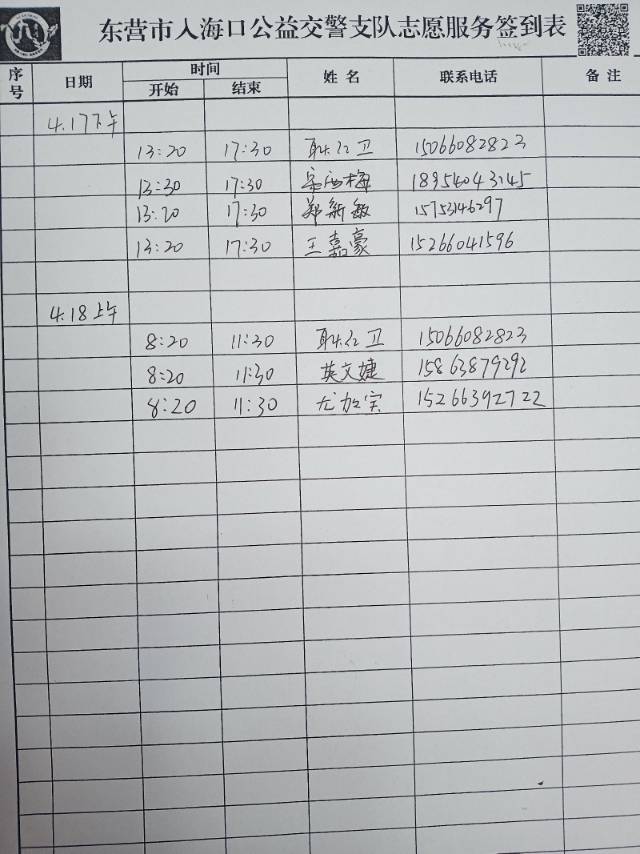 东营市入海口公益交警支队志愿服务签到表
序号 日期 时间 姓名 联系电话 备注
开始 结束
4.17下午
13:20 17:30 耿红卫 15066082823
13:30 17:30 梅 18954043145
13:20 17:30 郑新敏 15753146297
13:20 17:30 王嘉豪 15266041596
4.18上午
8:20 11:30 耿红卫 15066082823
8:20 11:30 英文婕 15863879292
8:20 11:30 尤加宾 15266392722